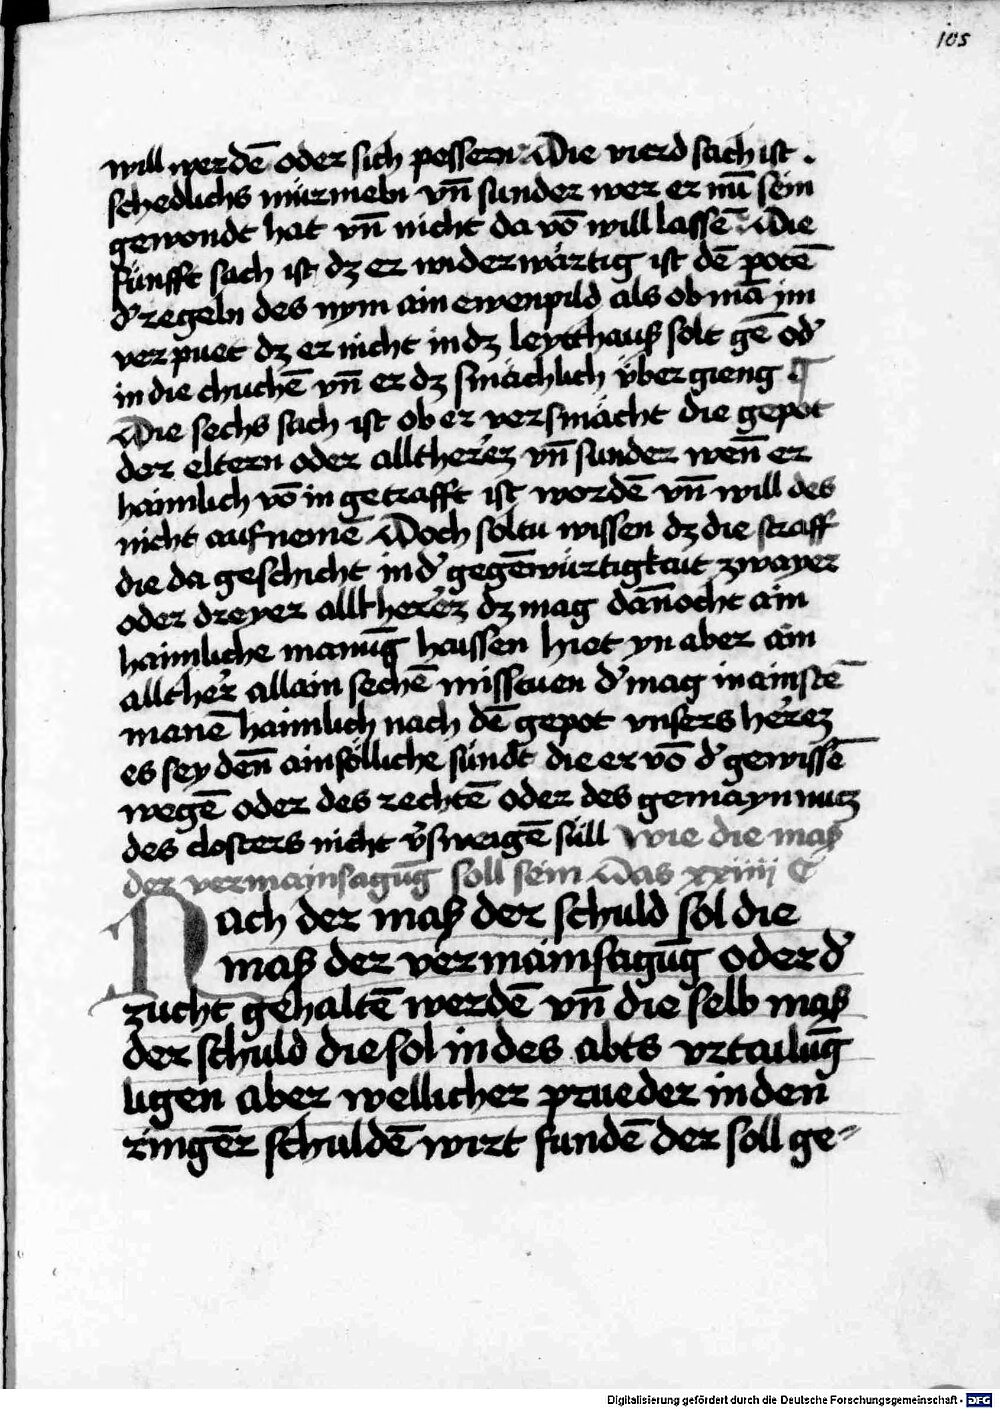 105
will werdē oder sich pessern Die vierd sach ist .
schedlichs mürmeln vn̄ sunder wer er nu̅ sein
gewondt hat vn̄ nicht da vō will lassē Die
fünfft sach ist dz er widerwärtig ist dē potē
d' regeln des nym ain ewenpild als ob mā im
verpuet dz er nicht in dz leytthauß solt gē od'
in die chuchē vn̄ er dz smächlich über gieng
Die sechs sach ist ob er versmächt die gepot
der eltern oder alltherrez vn̄ sunder wen̄ er
haimlich vō in gestrafft ist wordē vn̄ will des
nicht aufnemē Doch soltu wissen dz die straff
die da geschicht in d' gegēwürtigkait zwayer
oder dreyer alltherrez dz mag dan̄ocht ain
haimliche manūg haissen hiet yn aber ain
allther allain sechē misstuen d' mag in ainstē
manē haimlich nach dē gepot vnsers herrez
es sey den̄ ain sölliche sündt die er vō d' gewissē
wegē oder des rechtē oder des gemayn nucz
des closters nicht v'sweigē süll Wie die maß
der vermainsagūg soll sein Das xxiiii C
Nach der maß der schuld sol die
maß der vermainsagūg oder d'
zucht gehaltē werdē vn̄ die selb maß
der schuld die sol in des abts vrtailūg
ligen aber wellicher prueder in den
ringēr schuldē wirt fundē der soll ge=
Digitalisierung gefördert durch die Deutsche Forschungsgemeinschaft - DFG